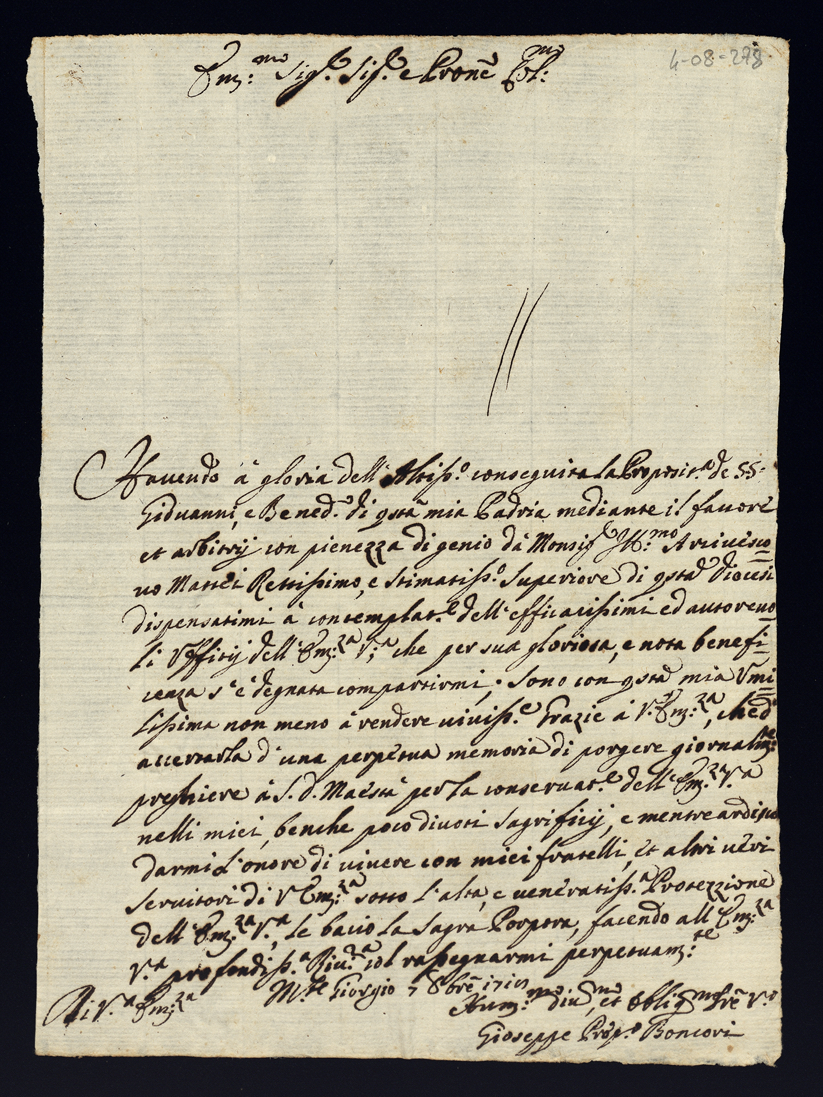 4-08-278
Em:mo Sigr. Sigr. e Prone Col:mo
Havendo à gloria dell'Altiss.o conseguita la Proposit.a de SS.
Giovanni, e Bened.o di qsta mia Padria mediante il favore
et arbitrij con pienezza di genio dà Monsigr Ill:mo Arcivesco
vo Mattei Rettissimo, e stimatiss.o Superiore di qsta Diocesi
dispensatimi à contemplat.e dell'efficacissimi ed autorevo
li Ufficij dell'Em:za V:a che per sua gloriosa, e nota benefi
cenza s'è degnata compartirmi; Sono con qsta mia Umi
lissima non meno à rendere viviss.e Grazie à V: Em:za, che d'
accertarla d'una perpetua memoria di porgere giornalm:te
preghiere à S. D. Maestà per la conservat.e dell'Em:za V.a
nelli miei, benche poco divoti Sagrificij, e mentre ardisco
darmi l'onore di vivere con miei fratelli, et altri veri
Servitori di V Em:za sotto l'alta, e veneratiss.a Protezzione
dell'Em:za V.a, le bacio la Sagra Porpora, facendo all'Em:za
V.a profondiss.a Riv.a col rassegnarmi perpetuam:te
Di V.a Em:za
M.te Giorgio 7 8bre
Hum:mo div:mo, et Obblig:mo Sre V.o
Gioseppe Prop.o Boncori